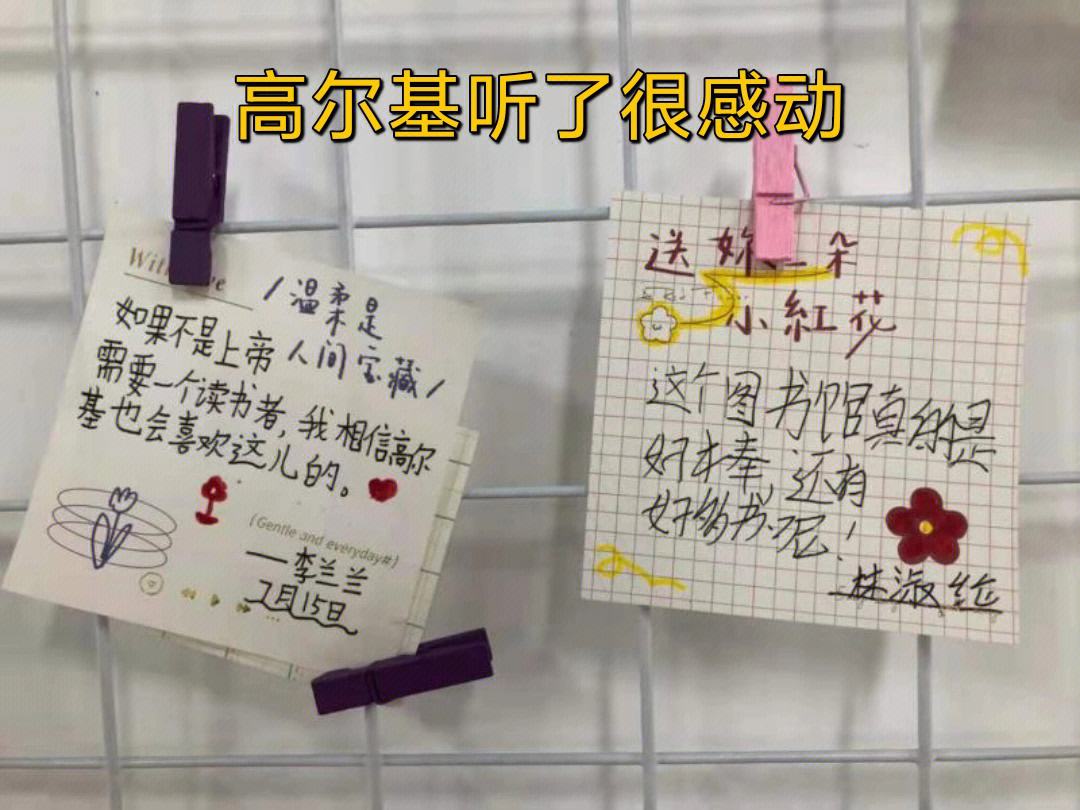 高尔基听了很感动
/温柔是
人间宝藏/
如果不是上帝
需要一个读书者，我相信高尔
基也会喜欢这儿的。
(Gentle and everyday#)
——李兰兰
7月15日
送妳一朵
小紅花
这个图书馆真的是
好才奉，还有
好多书呢！
林淑纶